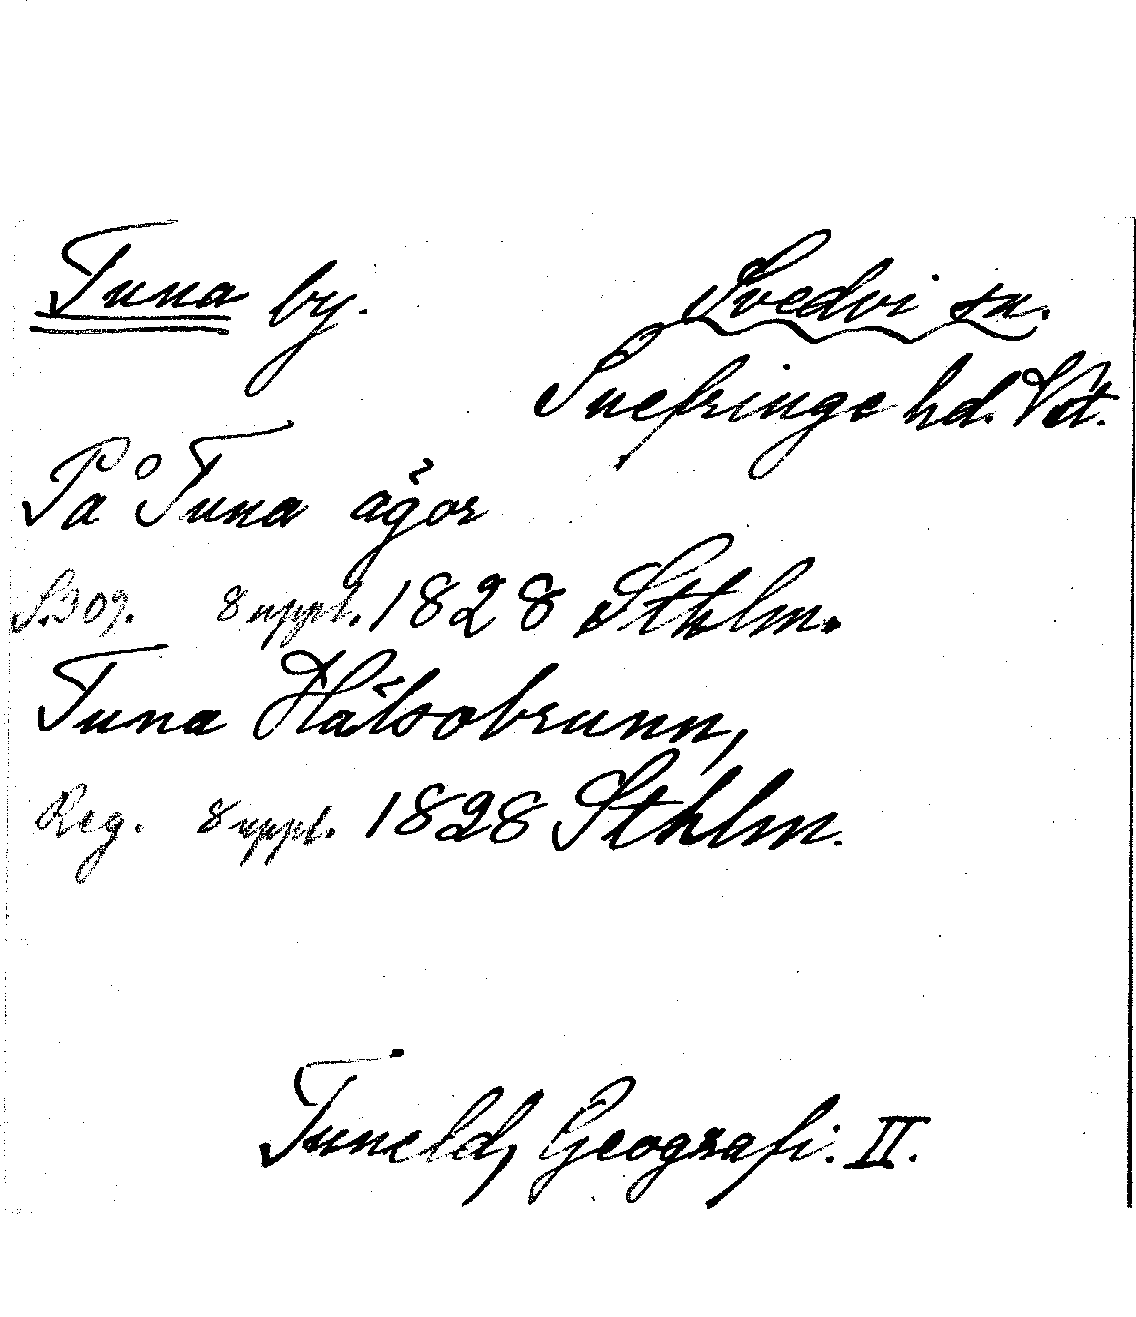 Tuna by.
Svedvi sn.
Snefringe hd. Vstm.
På Tuna ägor
S.309. 8 uppl. 1828 Sthlm.
Tuna Hälsobrunn,
Reg. 8 uppl. 1828 Sthlm.
Tuneld, Geografi. II.